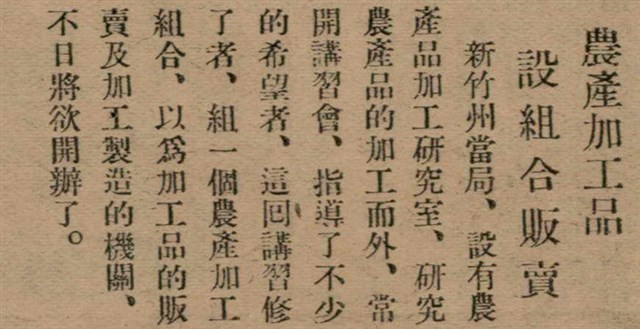 農產加工品
設組合販賣
新竹州當局、設有農
產品加工研究室、研究
農產品的加工而外、常
開講習會、指導了不少
的希望者、這回講習修
了者、組一個農產加工
組合、以爲加工品的販
賣及加工製造的機關、
不日將欲開辦了。